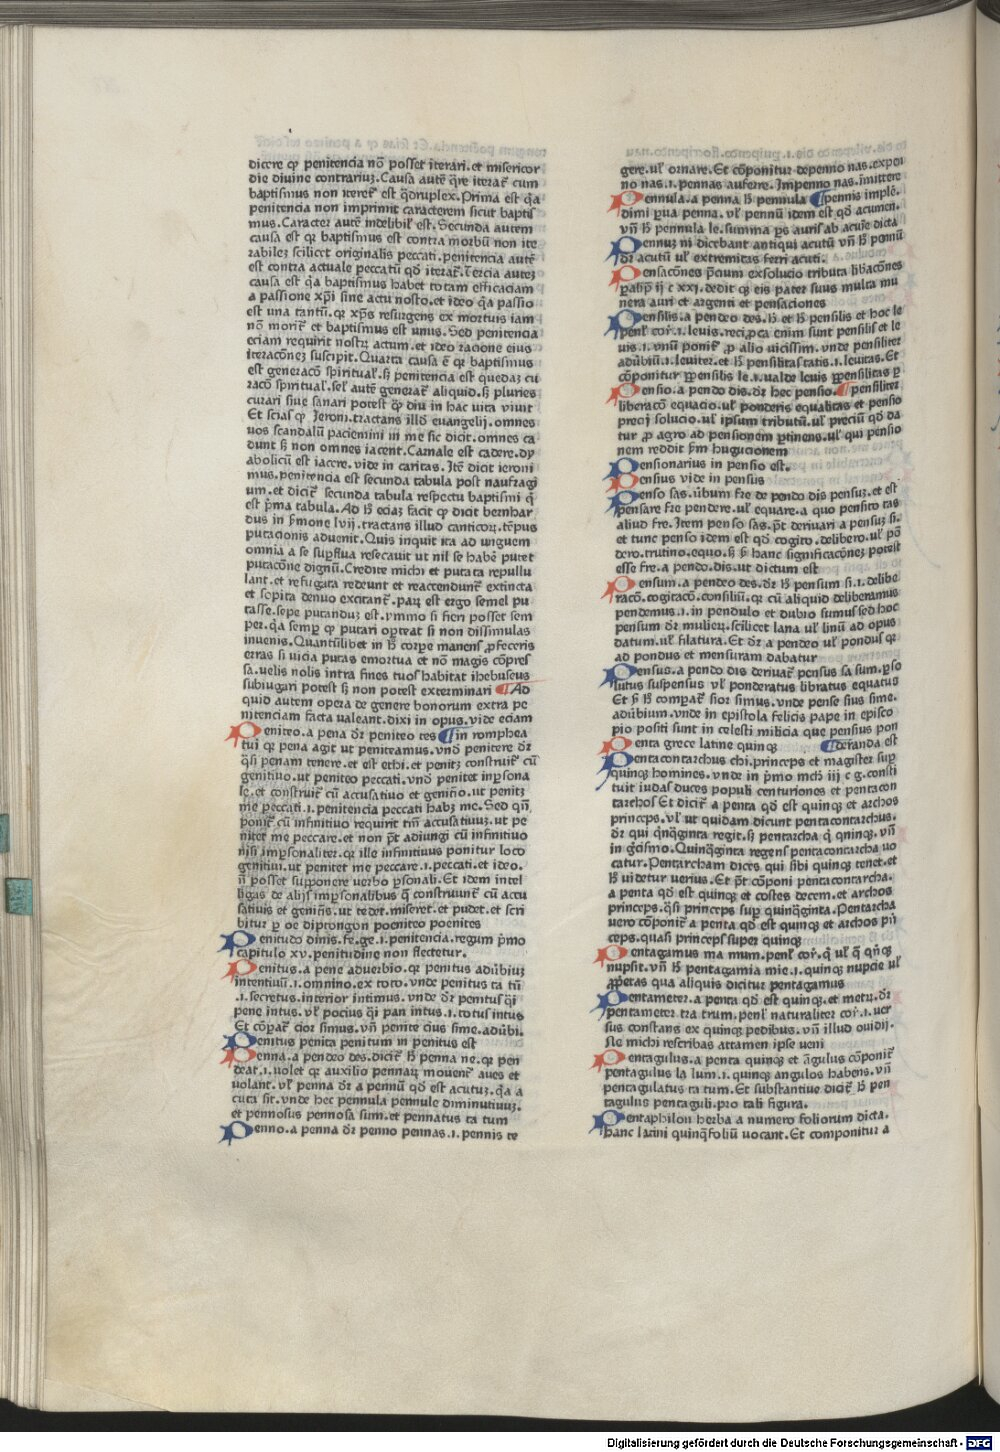 dicere ꝙ penitencia nō posset iterari. et misericor
die diuine contrariuꝫ. Causa autē q̄re iterat᷑ cum
baptismus non iteret᷑ est q̄druplex. Prima est q̄a
penitencia non imprimit caracterem sicut baptis
mus. Caracter autē indelibił est. Secunda autem
causa est qꝛ baptismus est contra morbū non ite
rabileꝫ scilicet originalis peccati. penitencia autē
est contra actuale peccatū qd̄ iterat᷑. Tercia auteꝫ
causa est q̄a baptismus habet totam efficaciam
a passione xp̄i sine actu nostro. et ideo q̄a passio
est una tantū. qꝛ xp̄s resurgens ex mortuis iam
nō morit᷑ et baptismus est unus. Sed penitencia
eciam requirit nostrꝫ actum. et ideo racione eius
iteracōneꝫ suscipit. Quarta causa ē qꝛ baptismus
est generacō spiritual᷑. sꝫ penitencia est quedaꝫ cu
racō spiritual᷑. sel᷑ autē generat᷑ aliquid. sꝫ pluries
curari siue sanari potest ꝙ diu in hac uita viuit
Et scias ꝙ Jeroni. tractans illd̄ euangelij. omnes
vos scandalū paciemini in me sic dicit. omnes ca
dunt sꝫ non omnes iacent. Carnale est cadere. dy
abolicū est iacere. vide in caritas. Jtē dicit ieroni
mus. penitencia est secunda tabula post naufragi
um. et dicit᷑ secunda tabula respectu baptismi q̄
est p̄ma tabula. Ad ħ eciaꝫ facit ꝙ dicit bernhar
dus in ẜmone lvij. tractans illud canticoꝝ. tēpus
putacionis aduenit. Quis inquit ita ad unguem
omnia a se suꝑflua resecauit ut nil se habē putet
putacōne dignū. Credite michi et putata repullu
lant. et refugata redeunt et reaccendunt᷑ extincta
et sopita denuo excitant᷑. parꝫ est ergo semel pu
tasse. sepe putanduꝫ est. ymmo si fieri posset sem
per. q̄a semꝑ ꝙ putari oꝑteat si non dissimulas
inuenis. Quantūlibet in ħ corꝑe manens ꝓfeceris
erras si uicia putas emortua et nō magis cōpres
sa. velis nolis intra fines tuos habitat ihebuseus
subiugari potest sꝫ non potest exterminari ¶ Ad
quid autem opera de genere bonorum extra pe
nitenciam facta ualeant. dixi in opus. vide eciam
Peniteo. a pena dr̄ peniteo tes ¶ in romphea
tui qꝛ pena agit ut peniteamus. vnd̄ penitere dr̄
q̄si penam tenere. et est ethi. et penitꝫ construit᷑ cū
genitiuo. ut peniteo peccati. vnd̄ penitet inꝑsona
le. et construit᷑ cū accusatiuo et genitīo. ut penitꝫ
me peccati. i. penitencia peccati habꝫ me. Sed qn̄
ponit᷑ cū infinitiuo requirit tm̄ accusatiuuꝫ. ut pe
nitet me peccare. et non pt̄ adiungi cū infinitiuo
nisi imꝑsonaliter. qꝛ ille infinitiuus ponitur loco
genitiui. ut penitet me peccare. i. peccati. et ideo.
n̄ posset suꝑponere uerbo ꝑsonali. Et idem intel
ligas de alijs imꝑsonalibus q̄ construunt᷑ cū accu
satiuis et genitis. ut tedet. miseret. et pudet. et scri
bitur ꝑ oe diptongon poeniteo poenites
Penitudo dinis. fe. ge. i. penitencia. regum p̄mo
capitulo xv. penitudine non flectetur.
Penitus. a pene aduerbio. qꝛ penitus adūbiuꝫ
intentiuū. i. omnino. ex toto. vnde penitus ta tū
. i. secretus. interior intimus. vnde dr̄ penitus q̄i
pene intus. vl᷑ pocius q̄i pan intus. i. totus intus
Et cōpat᷑ cior simus. vn̄ penite cius sime. adūbi.
Penitus penita penitum in penitus est
Penna. a pendeo des. dicit᷑ ħ penna ne. qꝛ pen
deat. i. uolet qꝛ auxilio pennaꝝ mouent᷑ aues et
uolant. vl᷑ penna dr̄ a pennū qd̄ est acutuꝫ. q̄a a
cuta sit. vnde hec pennula pennule diminutiuuꝫ.
et pennosus pennosa sum. et pennatus ta tum
Penno. a penna dr̄ penno pennas. i. pennis te
gere. ul᷑ ornare. Et cōponitur depenno nas. expen
no nas. i. pennas auferre. Jmpenno nas. īmittere
Pennula. a penna ħ pennula ¶ pennis implē.
dimi ꝑua penna. vl᷑ pennū idem est qd̄ acumen.
vn̄ ħ pennula le. summa ꝑs auris ab acuīe dicta
Pennuꝫ ni dicebant antiqui acutū vn̄ ħ pennū
dr̄ acutū ul᷑ extremitas ferri acuti.
Pensacōnes p̄cium exsolucio tributa libacōnes
ꝑalip̄ ij c xxi. dedit qꝫ eis pater suus multa mu
nera auri et argenti et pensaciones
Pensilis. a pendeo des. ħ et ħ pensilis et hoc le
penl᷑ cor᷑. i. leuis. reciꝓca enim sunt pensilis et le
uis. i. vnū ponit᷑ ꝓ alio vicissim. vnde pensiliter
adūbiū. i. leuiter. et ħ pensilitas tatis. i. leuitas. Et
cōponitur ꝑpensilis le. i. ualde leuis ꝑpensilitas ꝑ
Pensio. a pendo dis. dr̄ hec pensio. ¶ pensiliter
liberacō equacio. ul᷑ ponderis equalitas et pensio
precij solucio. ul᷑ ipsum tributū. ul᷑ preciū qd̄ da
tur ꝓ agro ad pensionem ꝑtinens. ul᷑ qui pensio
nem reddit ẜm hugucionem
Pensionarius in pensio est.
Pensius vide in pensus
Penso sas. ūbum fre de pendo dis pensuꝫ. et est
pensare fre pendere. ul᷑ equare. a quo pensito tas
aliud fre. Jtem penso sas. pt̄ deriuari a pensuꝫ si.
et tunc penso idem est qd̄ cogito. delibero. ul᷑ pō
dero. trutino. equo. sꝫ ẜ hanc significacōneꝫ potest
esse fre. a pendo. dis. ut dictum est
Pensum. a pendeo des. dr̄ ħ pensum si. i. delibe
racō. cogitacō. consiliū. qꝛ cū aliquid deliberamus
pendemus. i. in pendulo et dubio sumus sed hoc
pensum dr̄ mulieꝝ. scilicet lana ul᷑ linū ad opus
datum. ul᷑ filatura. Et dr̄ a pendeo ul᷑ pondus qꝛ
ad pondus et mensuram dabatur
Pensus. a pendo dis deriuat᷑ pensus sa sum. ꝑso
lutus suspensus vl᷑ ponderatus libratus equatus
Et ẜ ħ comparat᷑ sior simus. vnde pense sius sime.
adūbium. vnde in epistola felicis pape in episco
pio positi sunt in celesti milicia que pensius pon
Penta grece latine quinqꝫ ¶ deranda est
Pentacontarchus chi. princeps et magister suꝑ
quinqꝫ homines. vnde in p̄mo mch̄ iij c g. consti
tuit iudas duces populi centuriones et pentacon
tarchos Et dicit᷑ a penta qd̄ est quinqꝫ et archos
princeps. vl᷑ ut quidam dicunt pentacontarchus.
dr̄ qui q̄nq̄ginta regit. sꝫ pentarcha q̄ quinqꝫ. vn̄
in g̅cismo. Quinq̄ginta regens pentacontarcha uo
catur. Pentarcham dices qui sibi quinqꝫ tenet. et
ħ uidetur uerius. Et pt̄ cōponi pentacontarcha.
a penta qd̄ est quinqꝫ et costes decem. et archos
princeps. q̄si princeps suꝑ quinq̄ginta. Pentarcha
uero cōponit᷑ a penta qd̄ est quinqꝫ et archos p̄n
ceps. quasi princeps super quinqꝫ
Pentagamus ma mum. penl᷑ cor᷑. q̄ ul᷑ q̄ q̄nqꝫ
nupsit. vn̄ ħ pentagamia mie. i. quinqꝫ nupcie ul᷑
ꝓperas qua aliquis dicitur pentagamus
Pentameter. a penta qd̄ est quinqꝫ. et metꝝ. dr̄
pentameter tra trum. penl᷑ naturaliter cor᷑. i. uer
sus constans ex quinqꝫ pedibus. vn̄ illud ouidij.
Nil michi rescribas attamen ipse ueni
Pentagulus. a penta quinqꝫ et āgulus cōponit᷑
pentagulus la lum. i. quinqꝫ angulos habens. vn̄
pentagulatus ta tum. Et substantiue dicit᷑ ħ pen
tagulus pentaguli. pro tali figura.
Pentaphilon herba a numero foliorum dicta.
hanc latini quinq̄foliū uocant. Et componitur a
Digitalisierung gefördert durch die Deutsche Forschungsgemeinschaft - DFG